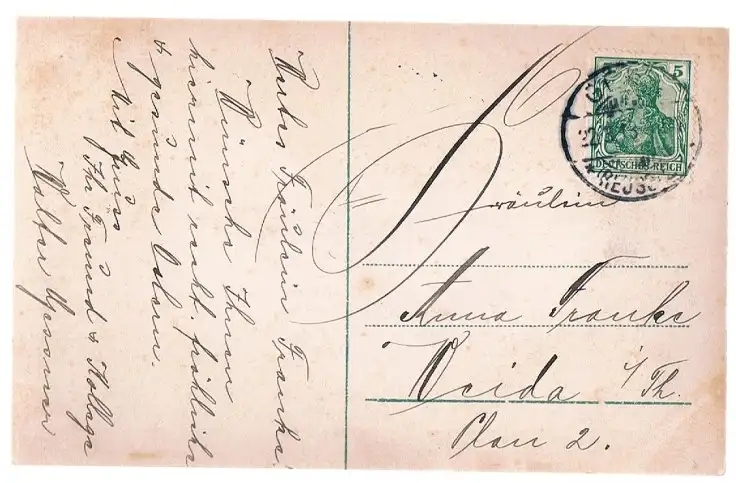 Wertes Fräulein Franke!
Wünsche Ihnen
hiermit recht fröhliche
& gesunde Ostern.
Mit Gruss
Ihr Freund & Kollege
Walter
5
DEUTSCHES REICH
Fräulein
Anna Franke
Weida i/Th.
Plan 2.